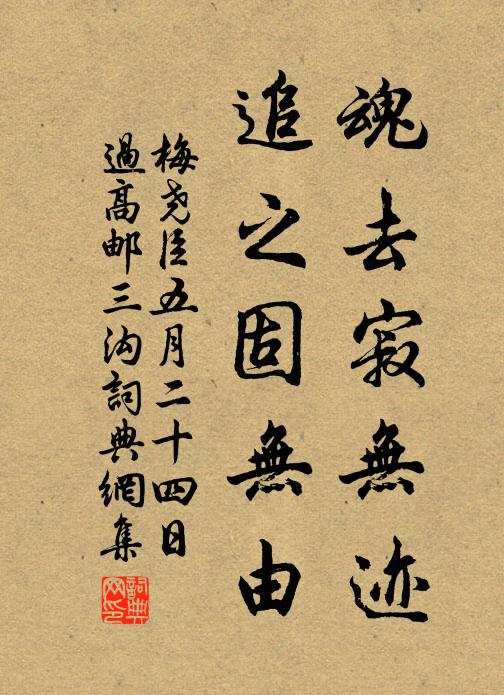 魂去寂無迹
追之固無由
梅尧臣五月二十四日
過高邮三沟詞典網集
詞典网印